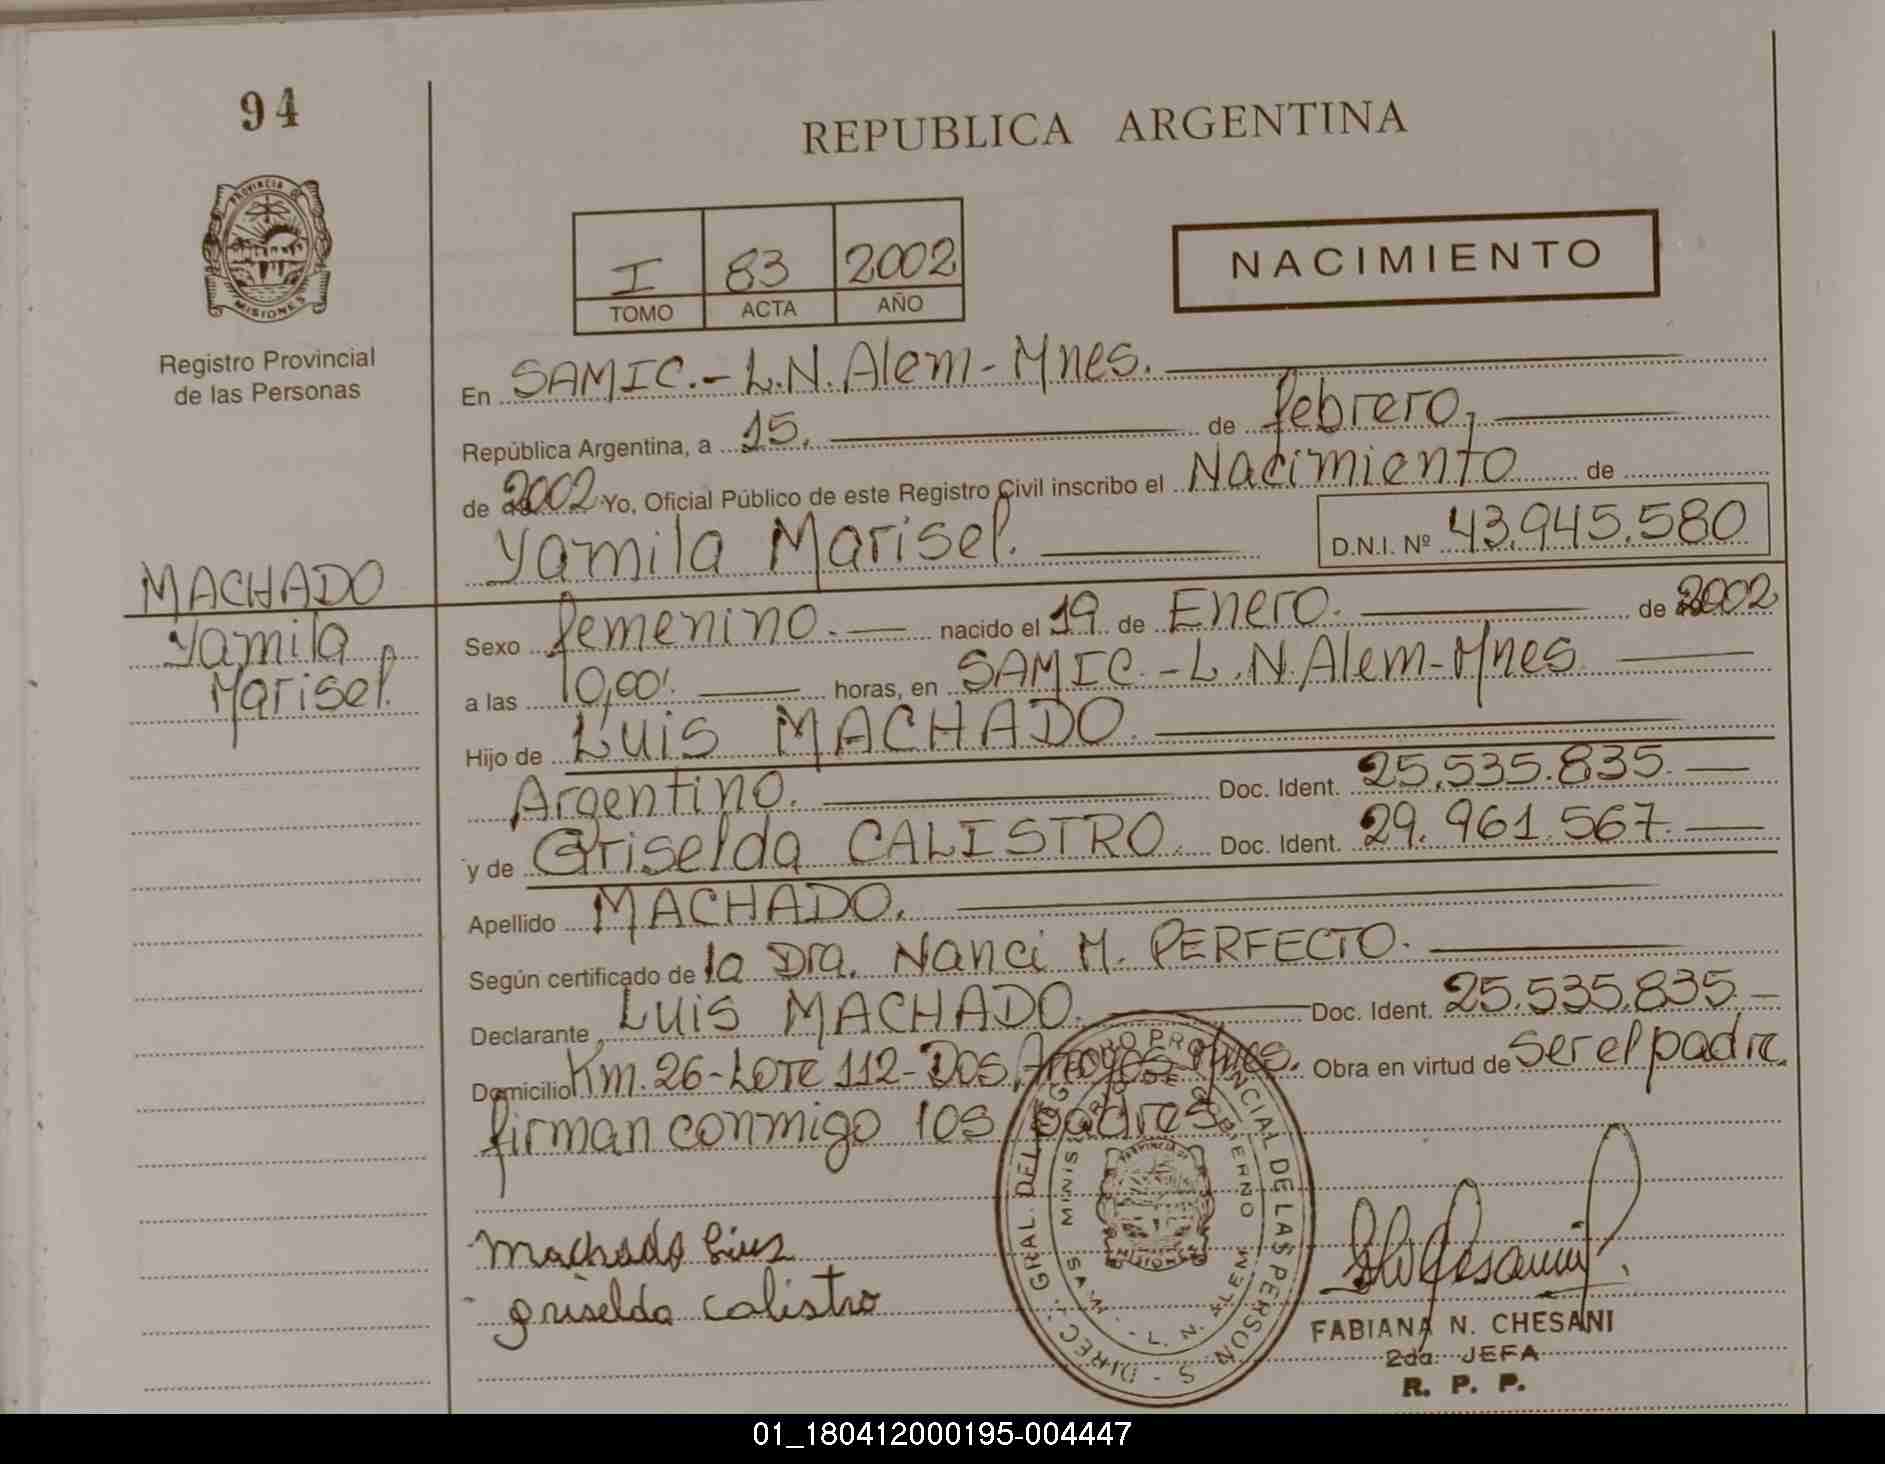 94
REPUBLICA ARGENTINA
PROVINCIA DE
MISIONES
Registro Provincial
de las Personas
I 83 2002
TOMO ACTA AÑO
NACIMIENTO
En SAMIC.- L.N. Alem - Mnes.
República Argentina, a 15. de febrero,
de 2002 Yo, Oficial Público de este Registro Civil inscribo el Nacimiento de
Yamila Marisel. D.N.I. Nº 43.945.580
MACHADO
Yamila
Marisel.
Sexo femenino. nacido el 19 de Enero. de 2002
a las 10,00'. horas, en SAMIC.-L.N. Alem-Mnes
Hijo de Luis MACHADO.
Argentino. Doc. Ident. 25.535.835.
y de Griselda CALISTRO. Doc. Ident. 29.961.567.
Apellido MACHADO.
Según certificado de la Dra. Nanci M. PERFECTO.
Declarante Luis MACHADO. Doc. Ident. 25.535.835.
Domicilio Km. 26-Lote 112-Dos Arroyos Mnes. Obra en virtud de ser el padre.
firman conmigo los padres
Machado Luis
griselda calistro
DIREC. GRAL. DEL REGISTRO PROVINCIAL DE LAS PERSONAS
MINISTERIO DE GOBIERNO
L. N. ALEM
PROVINCIA DE
MISIONES
FABIANA N. CHESANI
2da. JEFA
R. P. P.
01_180412000195-004447